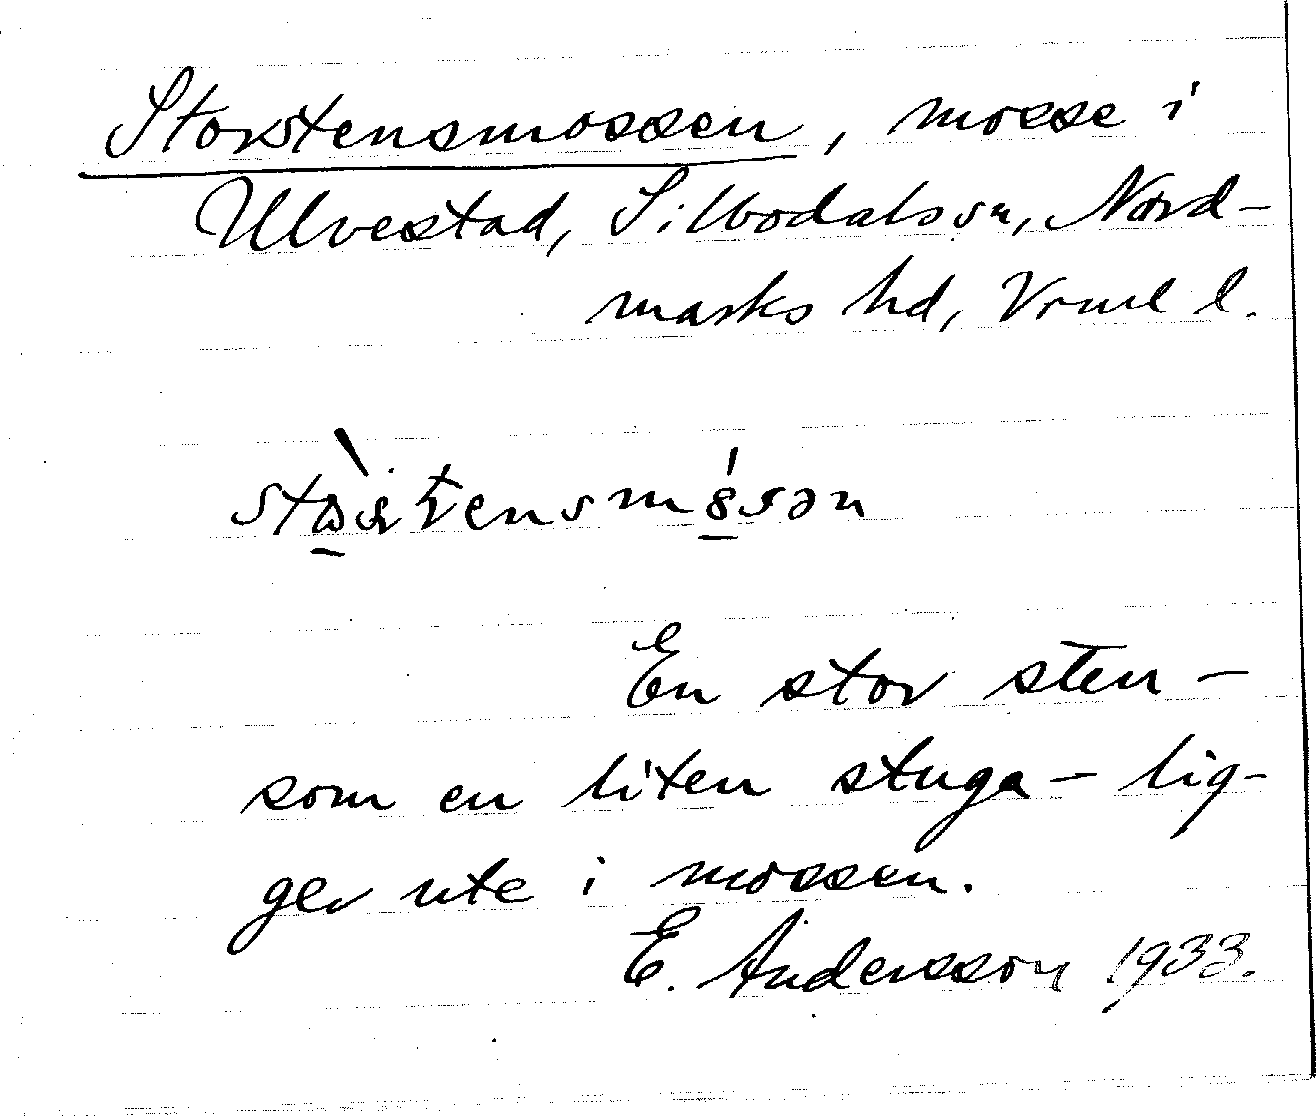 Storstensmossen, mosse i
Ulvestad, Silbodals sn, Nord-
marks hd, Vrml l.
En stor sten –
som en liten stuga – lig-
ger ute i mossen.
E. Andersson 1933.